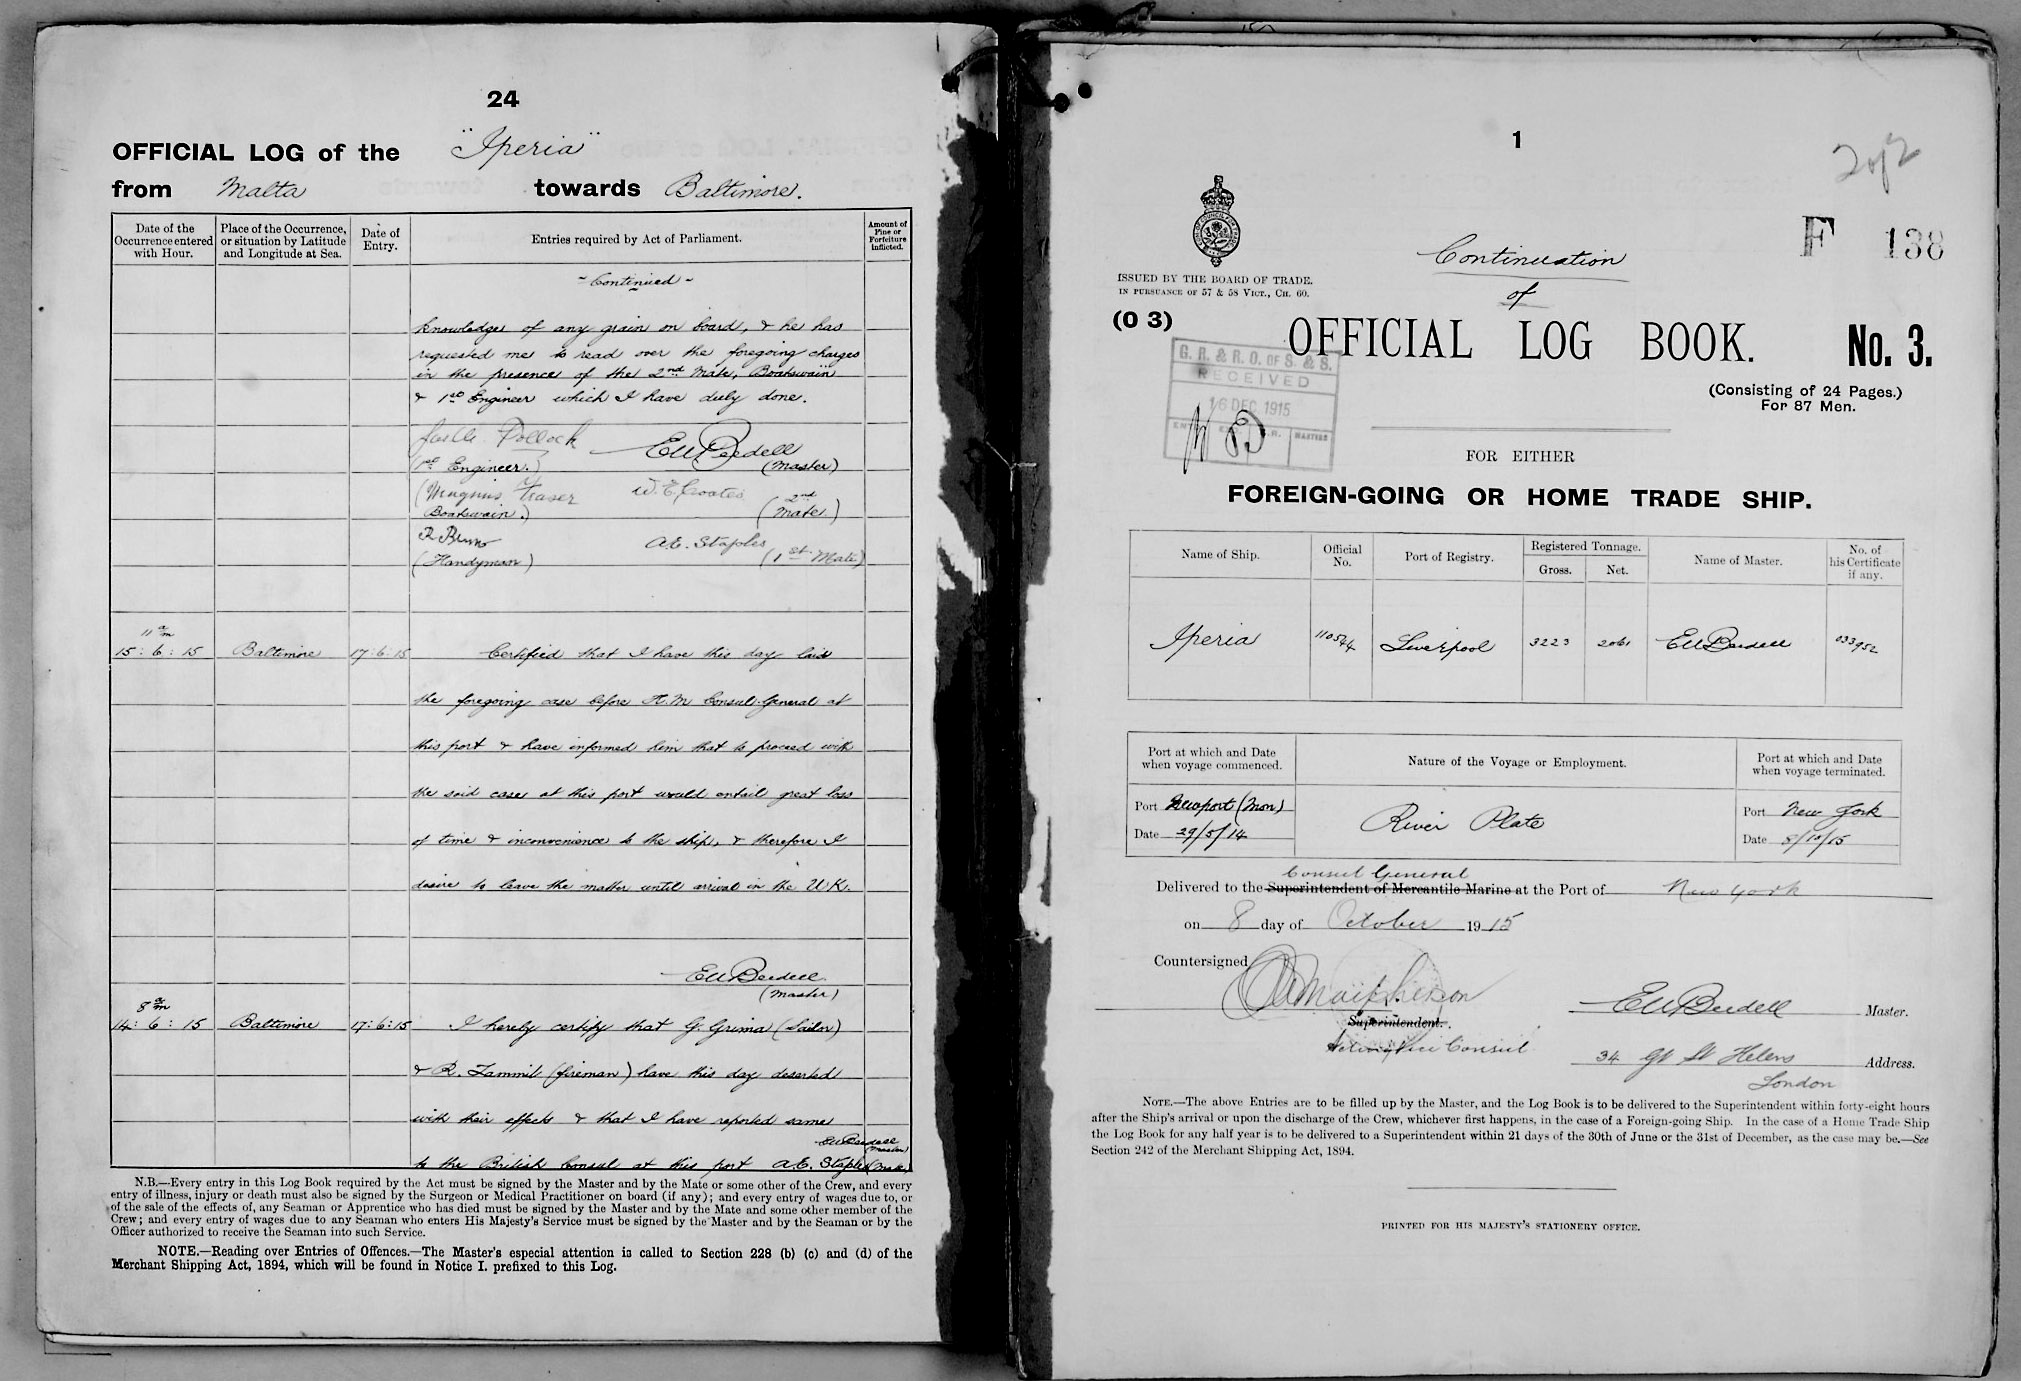 24
OFFICIAL LOG of the "Iperia"
from Malta towards Baltimore.
Date of the Occurrence entered with Hour.
Place of the Occurrence, or situation by Latitude and Longitude at Sea.
Date of Entry.
Entries required by Act of Parliament.
Amount of Fine or Forfeiture inflicted.
- Continued -
knowledge of any grain on board, & he has
requested me to read over the foregoing charges
in the presence of the 2nd Mate, Boatswain
& 1st Engineer which I have duly done.
Pollock EWBeedell
(1st Engineer.) (Master)
(Magnus Fraser W.E. Coates (2nd
Boatswain.) Mate.)
R Bruno A.E. Staples
(Handyman) (1st Mate)
11 am
15:6:15 Baltimore 17:6:15 Certified that I have this day laid
the foregoing case before H.M Consul-General at
this port & have informed him that to proceed with
the said case at this port would entail great loss
of time & inconvenience to the ship, & therefore I
desire to leave the matter until arrival in the U.K.
EWBeedell
(Master)
8 am
14:6:15 Baltimore 17:6:15 I hereby certify that G. Grima (Sailor)
& R. Zammit (fireman) have this day deserted
with their effects & that I have reported same
EWBeedell
(Master)
to the British Consul at this port A.E. Staples (Mate)
N.B.—Every entry in this Log Book required by the Act must be signed by the Master and by the Mate or some other of the Crew, and every
entry of illness, injury or death must also be signed by the Surgeon or Medical Practitioner on board (if any); and every entry of wages due to, or
of the sale of the effects of, any Seaman or Apprentice who has died must be signed by the Master and by the Mate and some other member of the
Crew; and every entry of wages due to any Seaman who enters His Majesty's Service must be signed by the Master and by the Seaman or by the
Officer authorized to receive the Seaman into such Service.
NOTE.—Reading over Entries of Offences.—The Master's especial attention is called to Section 228 (b) (c) and (d) of the
Merchant Shipping Act, 1894, which will be found in Notice I. prefixed to this Log.
1
2 of 2
F 138
Continuation
of
ISSUED BY THE BOARD OF TRADE.
IN PURSUANCE OF 57 & 58 VICT., CH. 60.
(O 3)
OFFICIAL LOG BOOK. No. 3.
(Consisting of 24 Pages.)
For 87 Men.
G. R. & R. O. OF S. & S.
RECEIVED
16 DEC 1915
MASTERS
FOR EITHER
FOREIGN-GOING OR HOME TRADE SHIP.
Name of Ship.
Official No.
Port of Registry.
Registered Tonnage.
Gross.
Net.
Name of Master.
No. of his Certificate if any.
Iperia 110544 Liverpool 3223 2061 EWBeedell 033952
Port at which and Date when voyage commenced.
Nature of the Voyage or Employment.
Port at which and Date when voyage terminated.
Port Newport (Mon) River Plate Port New York
Date 29/5/14 Date 8/10/15
Consul General
Delivered to the Superintendent of Mercantile Marine at the Port of New York
on 8 day of October 1915
Countersigned
EWBeedell Master.
Superintendent.
Acting Vice Consul
34 Gt St Helens Address.
London
NOTE.—The above Entries are to be filled up by the Master, and the Log Book is to be delivered to the Superintendent within forty-eight hours
after the Ship's arrival or upon the discharge of the Crew, whichever first happens, in the case of a Foreign-going Ship. In the case of a Home Trade Ship
the Log Book for any half year is to be delivered to a Superintendent within 21 days of the 30th of June or the 31st of December, as the case may be.—See
Section 242 of the Merchant Shipping Act, 1894.
PRINTED FOR HIS MAJESTY'S STATIONERY OFFICE.